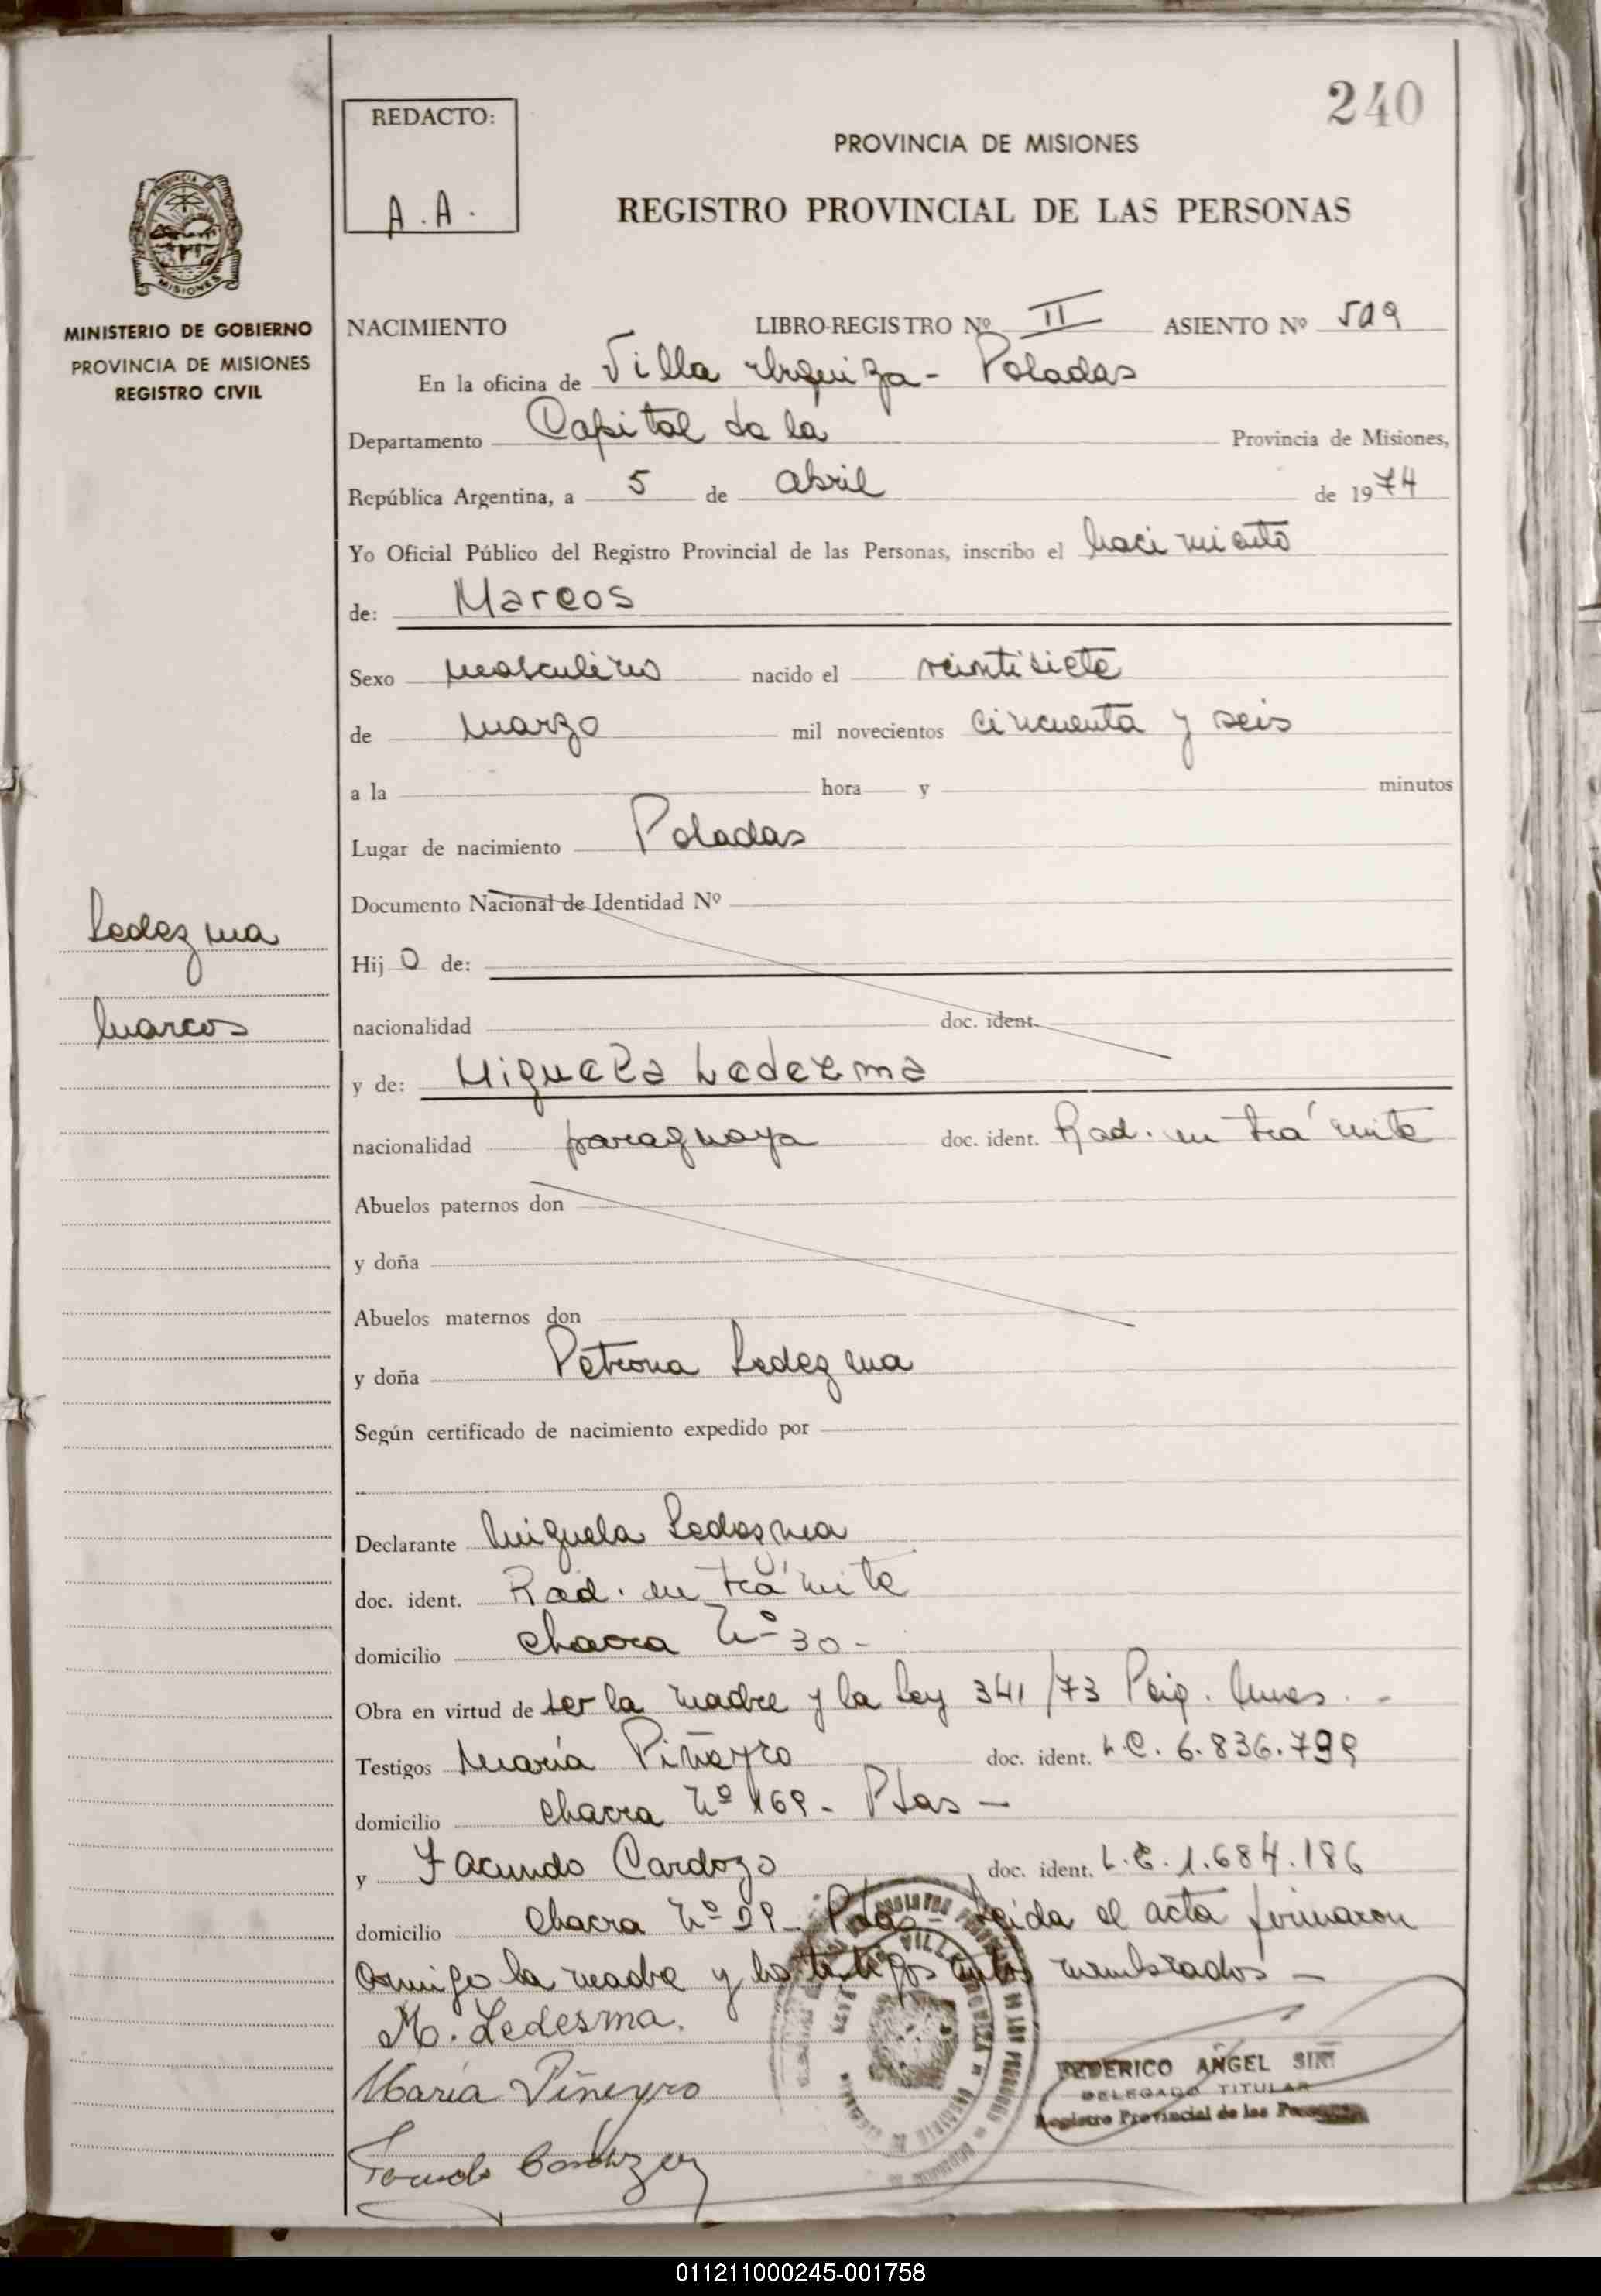 240
REDACTO:
A.A.
PROVINCIA DE MISIONES
REGISTRO PROVINCIAL DE LAS PERSONAS
MINISTERIO DE GOBIERNO
PROVINCIA DE MISIONES
REGISTRO CIVIL
NACIMIENTO LIBRO-REGISTRO Nº II ASIENTO Nº 509
En la oficina de Villa Urquiza - Posadas
Departamento Capital de la Provincia de Misiones,
República Argentina, a 5 de abril de 1974
Yo Oficial Público del Registro Provincial de las Personas, inscribo el nacimiento
de: Marcos
Sexo masculino nacido el veintisiete
de marzo mil novecientos cincuenta y seis
a la hora y minutos
Lugar de nacimiento Posadas
Documento Nacional de Identidad Nº
Ledezma
Hijo de:
Marcos
nacionalidad doc. ident.
y de: Miguela Ledezma
nacionalidad paraguaya doc. ident. Rad. en trámite
Abuelos paternos don
y doña
Abuelos maternos don
y doña Petrona Ledezma
Según certificado de nacimiento expedido por
Declarante Miguela Ledesma
doc. ident. Rad. en trámite
domicilio chacra Nº 30-
Obra en virtud de ser la madre y la Ley 341/73
Testigos María Piñeyro doc. ident. L.C. 6.836.799
domicilio chacra Nº 169 - Pdas -
y Facundo Cardozo doc. ident. L.E. 1.684.186
domicilio chacra Nº 29 - Pdas - Leida el acta firmaron
conmigo la madre y los testigos antes nombrados -
M. Ledesma.
María Piñeyro
Facundo Cardozo
FEDERICO ANGEL SIRI
DELEGADO TITULAR
Registro Provincial de las Personas
011211000245-001758